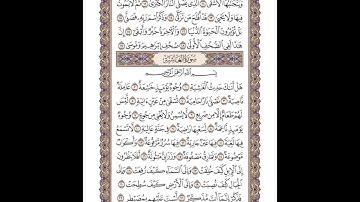 وَيَتَجَنَّبُهَا الْأَشْقَى ۝ الَّذِي يَصْلَى النَّارَ الْكُبْرَى ۝ ثُمَّ لَا يَمُوتُ
فِيهَا وَلَا يَحْيَى ۝ قَدْ أَفْلَحَ مَن تَزَكَّى ۝ وَذَكَرَ اسْمَ رَبِّهِ فَصَلَّى ۝
بَلْ تُؤْثِرُونَ الْحَيَوٰةَ الدُّنْيَا ۝ وَالْآخِرَةُ خَيْرٌ وَأَبْقَى ۝ إِنَّ
هَٰذَا لَفِي الصُّحُفِ الْأُولَى ۝ صُحُفِ إِبْرَٰهِيمَ وَمُوسَى ۝
سُورَةُ الْغَاشِيَةِ
بِسْمِ اللَّهِ الرَّحْمَٰنِ الرَّحِيمِ
هَلْ أَتَىٰكَ حَدِيثُ الْغَٰشِيَةِ ۝ وُجُوهٌ يَوْمَئِذٍ خَٰشِعَةٌ ۝ عَامِلَةٌ
نَّاصِبَةٌ ۝ تَصْلَى نَارًا حَامِيَةً ۝ تُسْقَى مِنْ عَيْنٍ ءَانِيَةٍ ۝ لَّيْسَ
لَهُمْ طَعَامٌ إِلَّا مِن ضَرِيعٍ ۝ لَّا يُسْمِنُ وَلَا يُغْنِي مِن جُوعٍ ۝ وُجُوهٌ
يَوْمَئِذٍ نَّاعِمَةٌ ۝ لِّسَعْيِهَا رَاضِيَةٌ ۝ فِي جَنَّةٍ عَالِيَةٍ ۝ لَّا تَسْمَعُ
فِيهَا لَٰغِيَةً ۝ فِيهَا عَيْنٌ جَارِيَةٌ ۝ فِيهَا سُرُرٌ مَّرْفُوعَةٌ ۝ وَأَكْوَابٌ
مَّوْضُوعَةٌ ۝ وَنَمَارِقُ مَصْفُوفَةٌ ۝ وَزَرَابِيُّ مَبْثُوثَةٌ ۝ أَفَلَا يَنظُرُونَ
إِلَى الْإِبِلِ كَيْفَ خُلِقَتْ ۝ وَإِلَى السَّمَاءِ كَيْفَ رُفِعَتْ ۝ وَإِلَى
الْجِبَالِ كَيْفَ نُصِبَتْ ۝ وَإِلَى الْأَرْضِ كَيْفَ سُطِحَتْ ۝
فَذَكِّرْ إِنَّمَا أَنتَ مُذَكِّرٌ ۝ لَّسْتَ عَلَيْهِم بِمُصَيْطِرٍ ۝